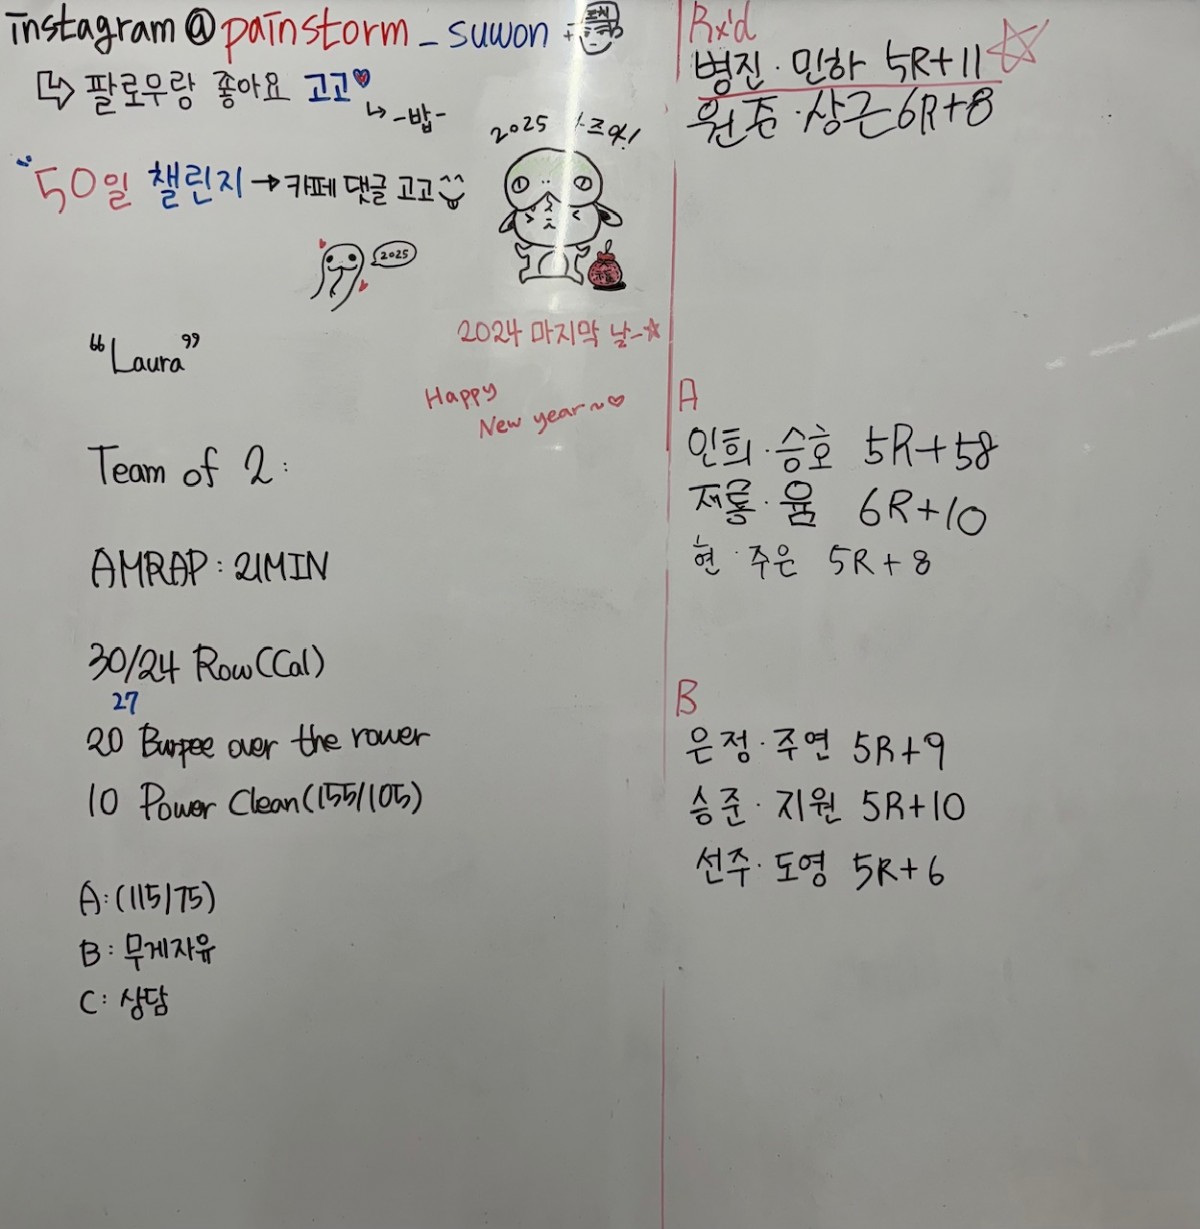 instagram@painstorm_suwon +
팔로우랑 좋아요 고고
-밥-
50일 챌린지→카페 댓글 고고
2025
2025
2024 마지막 날~
Happy
New year~
"Laura"
Team of 2:
AMRAP: 21MIN
30/24 Row(Cal)
27
20 Burpee over the rower
10 Power Clean(155/105)
A:(115/75)
B: 무게자유
C: 상담
Rx'd
병진·민하 5R+11
원준·상근 6R+8
A
인희·승호 5R+58
재롱·움 6R+10
현·주은 5R+8
B
은정·주연 5R+9
승준·지원 5R+10
선주·도영 5R+6